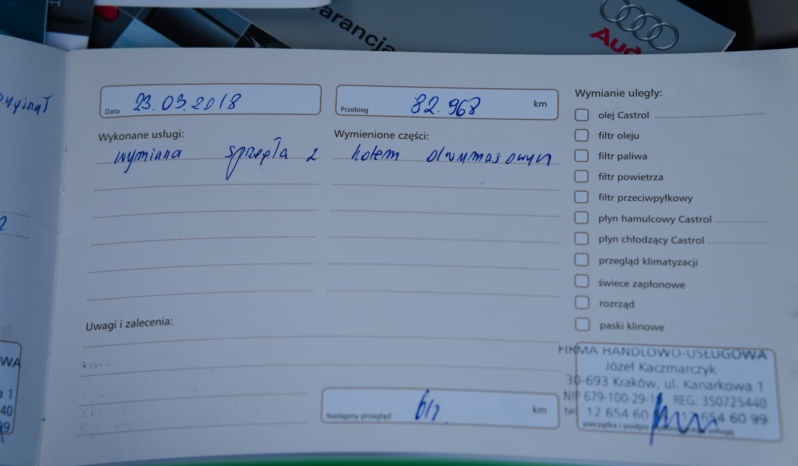 Gwarancja
Audi
Data 23.03.2018
Przebieg 82.968 km
Wykonane usługi:
Wymienione części:
wymiana sprzęgła z kołem dwumasowym
Uwagi i zalecenia:
Następny przegląd km
Wymianie uległy:
olej Castrol
filtr oleju
filtr paliwa
filtr powietrza
filtr przeciwpyłkowy
płyn hamulcowy Castrol
płyn chłodzący Castrol
przegląd klimatyzacji
świece zapłonowe
rozrząd
paski klinowe
FIRMA HANDLOWO-USŁUGOWA
Józef Kaczmarczyk
30-693 Kraków, ul. Kanarkowa 1
NIP 679-100-29- REG. 350725440
tel 12 654 60 12 654 60 99
pieczątka i podpis